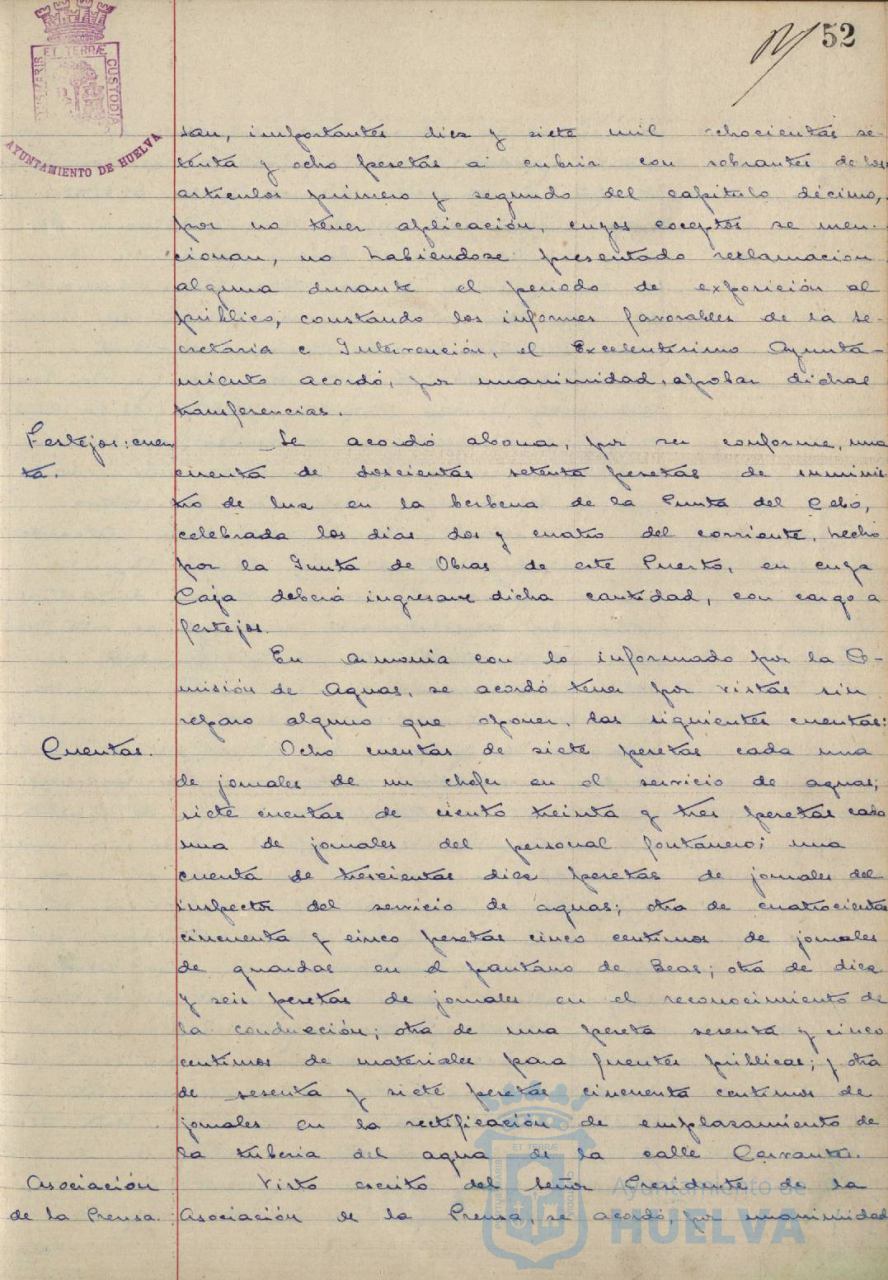 52
PORTUS MARIS ET TERRÆ CUSTODIA
AYUNTAMIENTO DE HUELVA
san, importantes diez y siete mil ochocientas se-
tenta y ocho pesetas a cubrir con sobrantes de los
articulos primero y segundo del capitulo décimo,
por no tener aplicación, cuyos coceptos se men-
cionan, no habiendose presentado reclamacion
alguna durante el periodo de exposición al
público, constando los informes favorables de la Se-
cretaria e Intervención, el Excelentisimo Ayunta-
miento acordó, por unanimidad, apobar dichas
transferencias.
Festejos: cuen
ta.
Se acordó abonar, por ser conforme, una
cuenta de doscientas setenta pesetas de suminis
tro de luz en la berbena de la Punta del Cebo,
celebrada los dias dos y cuatro del corriente, hecho
por la Junta de Obras de este Puerto, en cuya
Caja deberá ingresarse dicha cantidad, con cargo a
festejos.
En armonia con lo informado por la Co-
misión de Aguas, se acordó tener por vistas sin
reparo alguno que oponer, las siguientes cuentas:
Cuentas.
Ocho cuentas de siete pesetas cada una
de jornales de un chofer en el servicio de aguas;
siete cuentas de ciento treinta y tres pesetas cada
una de jornales del personal fontanero; una
cuenta de trescientas diez pesetas de jornales del
inspector del servicio de aguas; otra de cuatrocientas
cincuenta y cinco pesetas cinco centimos de jornales
de guardas en el pantano de Beas; otra de diez
y seis pesetas de jornales en el reconocimiento de
la conducción; otra de una peseta sesenta y cinco
centimos de materiales para fuentes públicas; y otra
de sesenta y siete pesetas cincuenta centimos de
jornales en la rectificación de emplazamiento de
la tuberia del agua de la calle Cervantes.
Asociación
de la Prensa.
Visto escrito del señor Presidente de la
Asociación de la Prensa, se acordó, por unanimidad
Ayuntamiento de
HUELVA